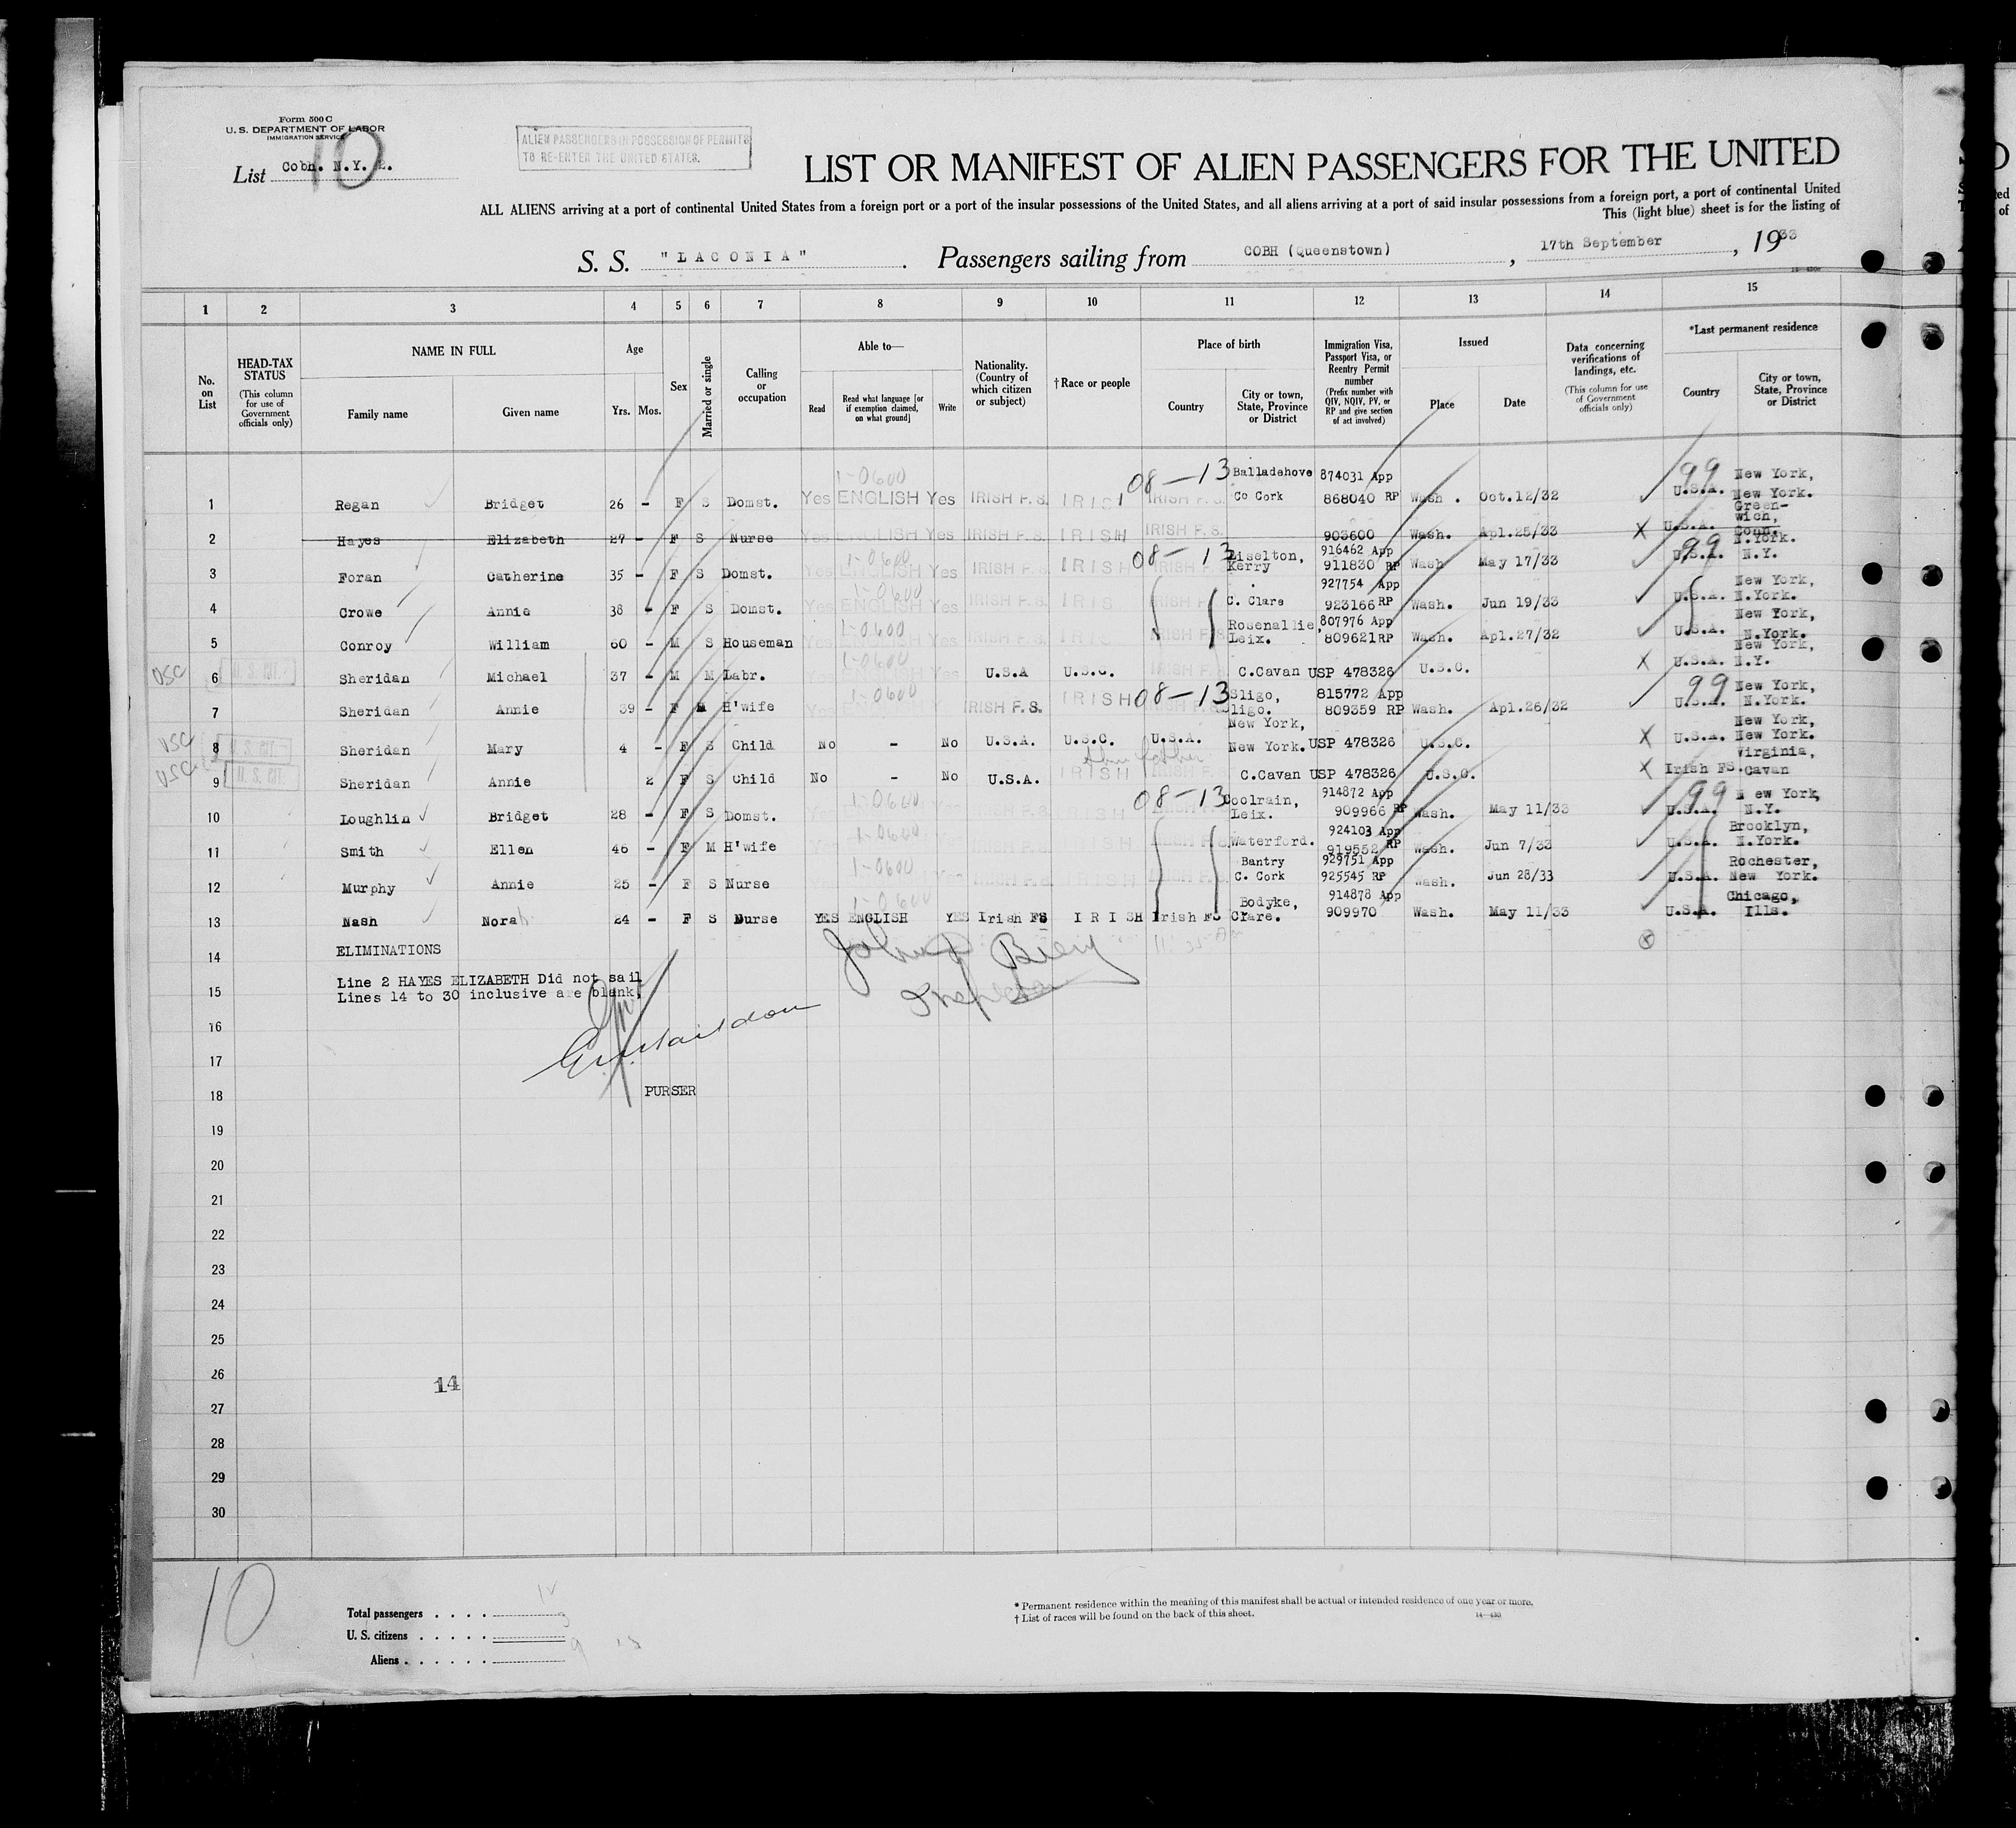 Form 500 C
U. S. DEPARTMENT OF LABOR
IMMIGRATION SERVICE
List Cobh. N.Y.
10
ALIEN PASSENGERS IN POSSESSION OF PERMITS
TO RE-ENTER THE UNITED STATES.
LIST OR MANIFEST OF ALIEN PASSENGERS FOR THE UNITED
ALL ALIENS arriving at a port of continental United States from a foreign port or a port of the insular possessions of the United States, and all aliens arriving at a port of said insular possessions from a foreign port, a port of continental United
This (light blue) sheet is for the listing of
S. S. "LACONIA". Passengers sailing from COBH (Queenstown), 17th September, 1933
1 2 3 4 5 6 7 8 9 10 11 12 13 14 15
No. on List
HEAD-TAX STATUS (This column for use of Government officials only)
NAME IN FULL Family name Given name
Age Yrs. Mos.
Sex
Married or single
Calling or occupation
Able to— Read Read what language [or if exemption claimed, on what ground] Write
Nationality. (Country of which citizen or subject)
† Race or people
Place of birth Country City or town, State, Province or District
Immigration Visa, Passport Visa, or Reentry Permit number (Prefix number with QIV, NQIV, PV, or RP and give section of act involved)
Issued Place Date
Data concerning verifications of landings, etc. (This column for use of Government officials only)
*Last permanent residence Country City or town, State, Province or District
1 Regan Bridget 26 - F S Domst. Yes ENGLISH Yes 1-0600 IRISH F.S. IRISH IRISH F.S. 08-13 Balladehove Co Cork 874031 App 868040 RP Wash. Oct.12/32 99 U.S.A. New York, New York.
2 Hayes Elizabeth 27 - F S Nurse Yes ENGLISH Yes IRISH F.S. IRISH IRISH F.S. 903600 Wash. Apl.25/33 X U.S.A. Green- wich, Conn.
3 Foran Catherine 35 - F S Domst. Yes ENGLISH Yes 1-0600 IRISH F.S. IRISH IRISH F.S. 08-13 Liselton, Kerry 916462 App 911830 RP Wash May 17/33 99 U.S.A. N.York. N.Y.
4 Crowe Annie 38 - F S Domst. Yes ENGLISH Yes 1-0600 IRISH F.S. IRISH IRISH F. C. Clare 927754 App 923166 RP Wash. Jun 19/33 U.S.A. New York, N.York.
5 Conroy William 60 - M S Houseman Yes ENGLISH Yes 1-0600 IRISH F.S. IRISH IRISH F.S. Rosenallie, Leix. 807976 App 809621 RP Wash. Apl.27/32 U.S.A. New York, N.York.
USC U. S. CIT. 6 Sheridan Michael 37 - M M Labr. Yes ENGLISH Yes 1-0600 U.S.A U.S.C. IRISH F.S. C.Cavan USP 478326 U.S.C. X U.S.A. New York, N.Y.
7 Sheridan Annie 39 - F M H'wife Yes ENGLISH Y 1-0600 IRISH F.S. IRISH 08-13 Sligo, Sligo. 815772 App 809359 RP Wash. Apl.26/32 99 U.S.A. New York, N.York.
USC U. S. CIT. 8 Sheridan Mary 4 - F S Child No - No U.S.A. U.S.C. U.S.A. New York, New York. USP 478326 U.S.C. X U.S.A. New York, New York.
USC U. S. CIT. 9 Sheridan Annie 2 F S Child No - No U.S.A. IRISH IRISH F. C.Cavan USP 478326 U.S.C. X Irish FS. Virginia, Cavan
10 Loughlin Bridget 28 - F S Domst. 1-0600 IRISH F.S. IRISH 08-13 Coolrain, Leix. 914872 App 909966 RP Wash. May 11/33 99 U.S.A. N ew York, N.Y.
11 Smith Ellen 46 - F M H'wife 1-0600 Waterford. 924103 App 919552 RP Wash. Jun 7/33 U.S.A. Brooklyn, N.York.
12 Murphy Annie 25 - F S Nurse 1-0600 IRISH F.S. IRISH Bantry C. Cork 929751 App 925545 RP Wash. Jun 28/33 U.S.A. Rochester, New York.
13 Nash Norah 24 - F S Nurse YES ENGLISH YES 1-0600 Irish FS IRISH Irish FS Bodyke, Clare. 914878 App 909970 Wash. May 11/33 U.S.A. Chicago, Ills.
14 ELIMINATIONS
15 Line 2 HAYES ELIZABETH Did not sail
Lines 14 to 30 inclusive are blank.
16
17
18 PURSER
19
20
21
22
23
24
25
26 14
27
28
29
30
10
Total passengers
U. S. citizens
Aliens
* Permanent residence within the meaning of this manifest shall be actual or intended residence of one year or more.
† List of races will be found on the back of this sheet.
14—430